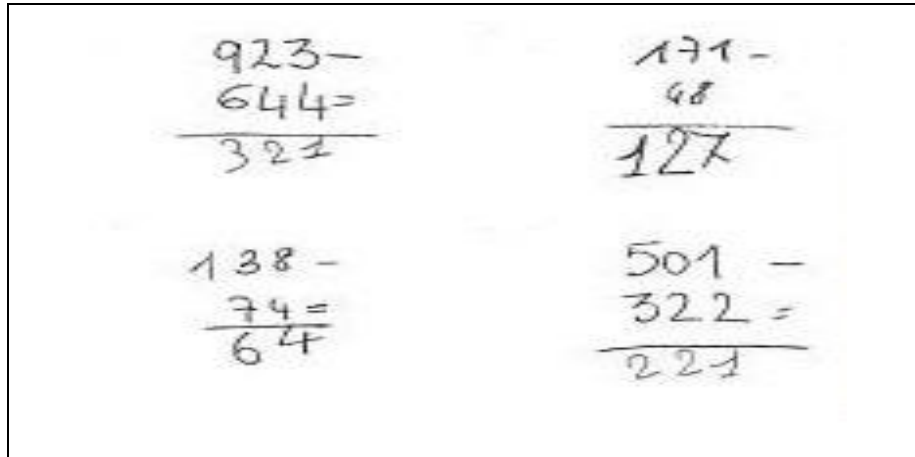 923-
644=
321
171-
48
127
138-
74=
64
501 -
322 =
221